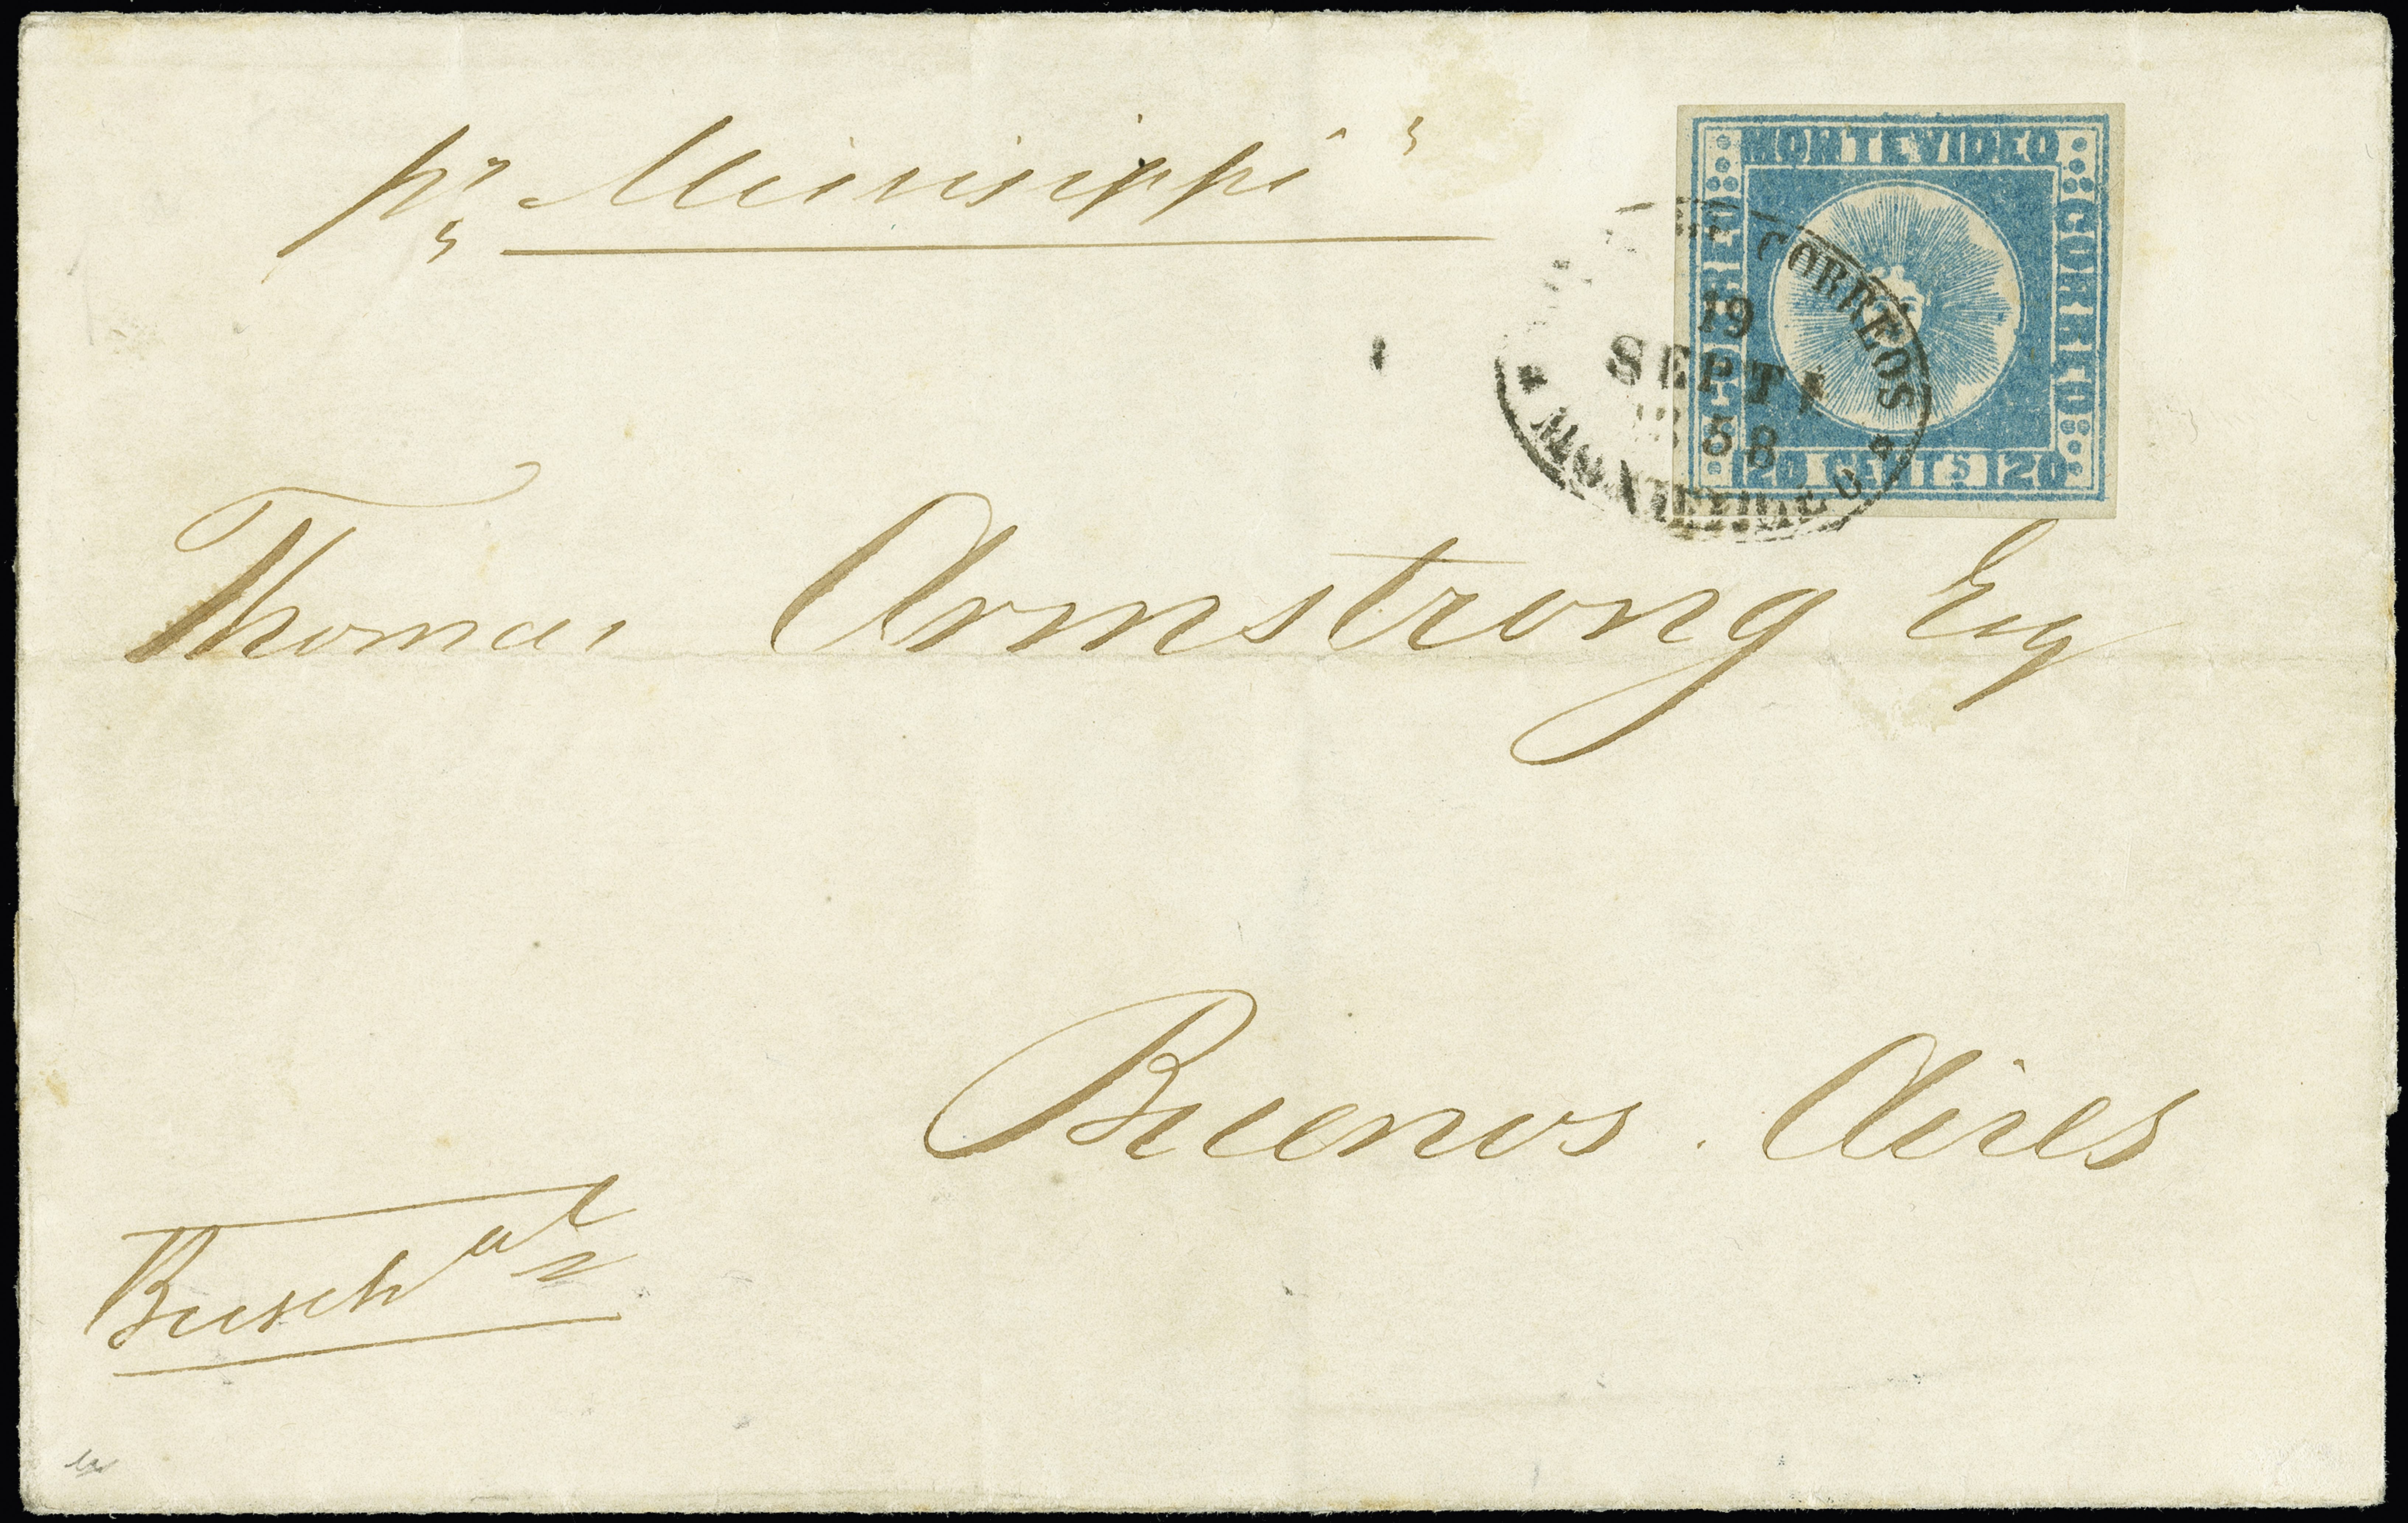 pr „Missisippi"
MONTEVIDEO
CORREO
CORREO
20 CENTS 20
CORREOS
19
SEPT
58
MONTEVIDEO
Thomas Armstrong Esq
Buenos Aires
Busch